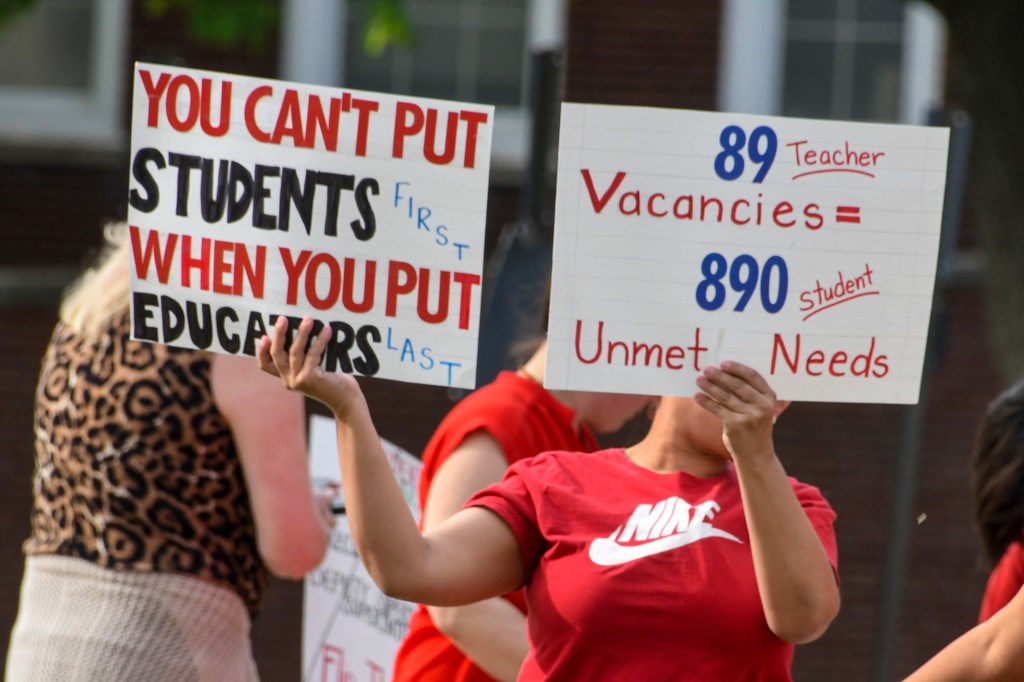 YOU CAN'T PUT
STUDENTS FIRST
WHEN YOU PUT
EDUCATORS LAST
89 Teacher
Vacancies =
890 student
Unmet Needs
NIKE